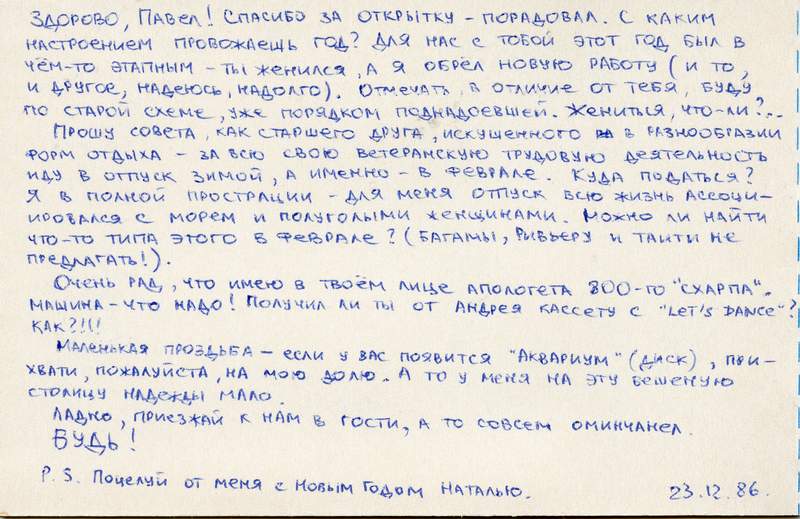 Здорово, Павел! Спасибо за открытку - порадовал. С каким
настроением провожаешь год? Для нас с тобой этот год был в
чём-то этапным - ты женился, а я обрёл новую работу (и то,
и другое, надеюсь, надолго). Отмечать, в отличие от тебя, буду
по старой схеме, уже порядком поднадоевшей. Жениться, что-ли?...
Прошу совета, как старшего друга, искушенного в разнообразии
форм отдыха - за всю свою ветеранскую трудовую деятельность
иду в отпуск зимой, а именно - в феврале. Куда податься?
Я в полной прострации - для меня отпуск всю жизнь ассоци-
ировался с морем и полуголыми женщинами. Можно ли найти
что-то типа этого в феврале? (Багамы, Ривьеру и Таити не
предлагать!).
Очень рад, что имею в твоём лице апологета 800-го "Схарпа".
Машина - что надо! Получил ли ты от Андрея кассету с "Let's Dance"?
Как?!!!
Маленькая проздьба - если у вас появится "Аквариум" (диск), при-
хвати, пожалуйста, на мою долю. А то у меня на эту бешеную
столицу надежды мало.
Ладно, приезжай к нам в гости, а то совсем оминчанел.
Будь!
P.S. Поцелуй от меня с Новым Годом Наталью.
23.12.86.